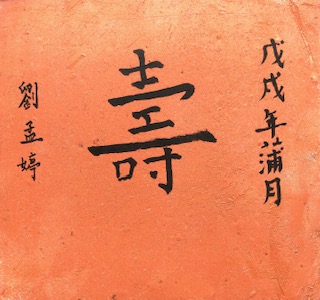 戊戌年蒲月
壽
劉孟婷